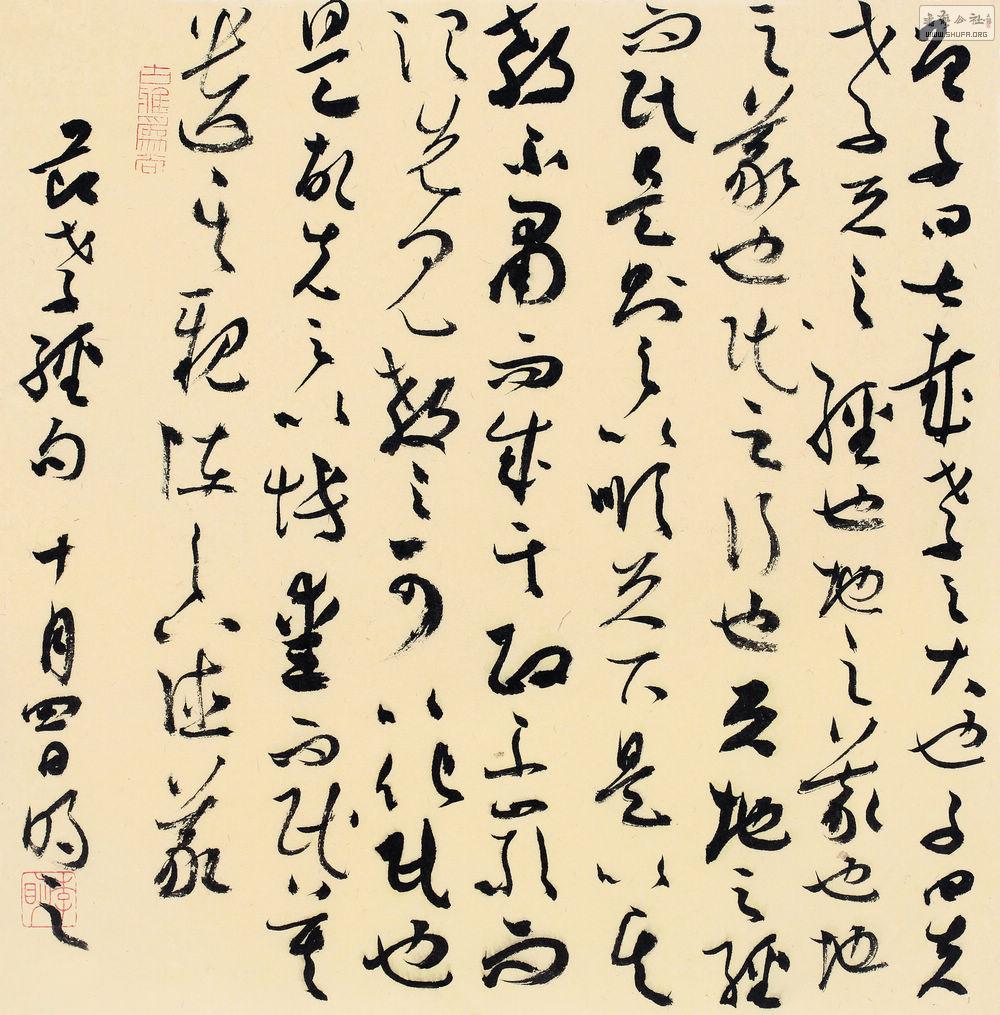 曾子曰甚哉孝之大也子曰夫
孝天之經也地之義也地
之義也民之行也天地之經
而民是則之以順天下是以其
教不肅而成其政不嚴而
治先見教之可以化民也
是故先之以博愛而民莫
遺其親陳之以德義
古雅爲尚
節孝經句 十月四日
書法公社
WWW.SHUFA.ORG